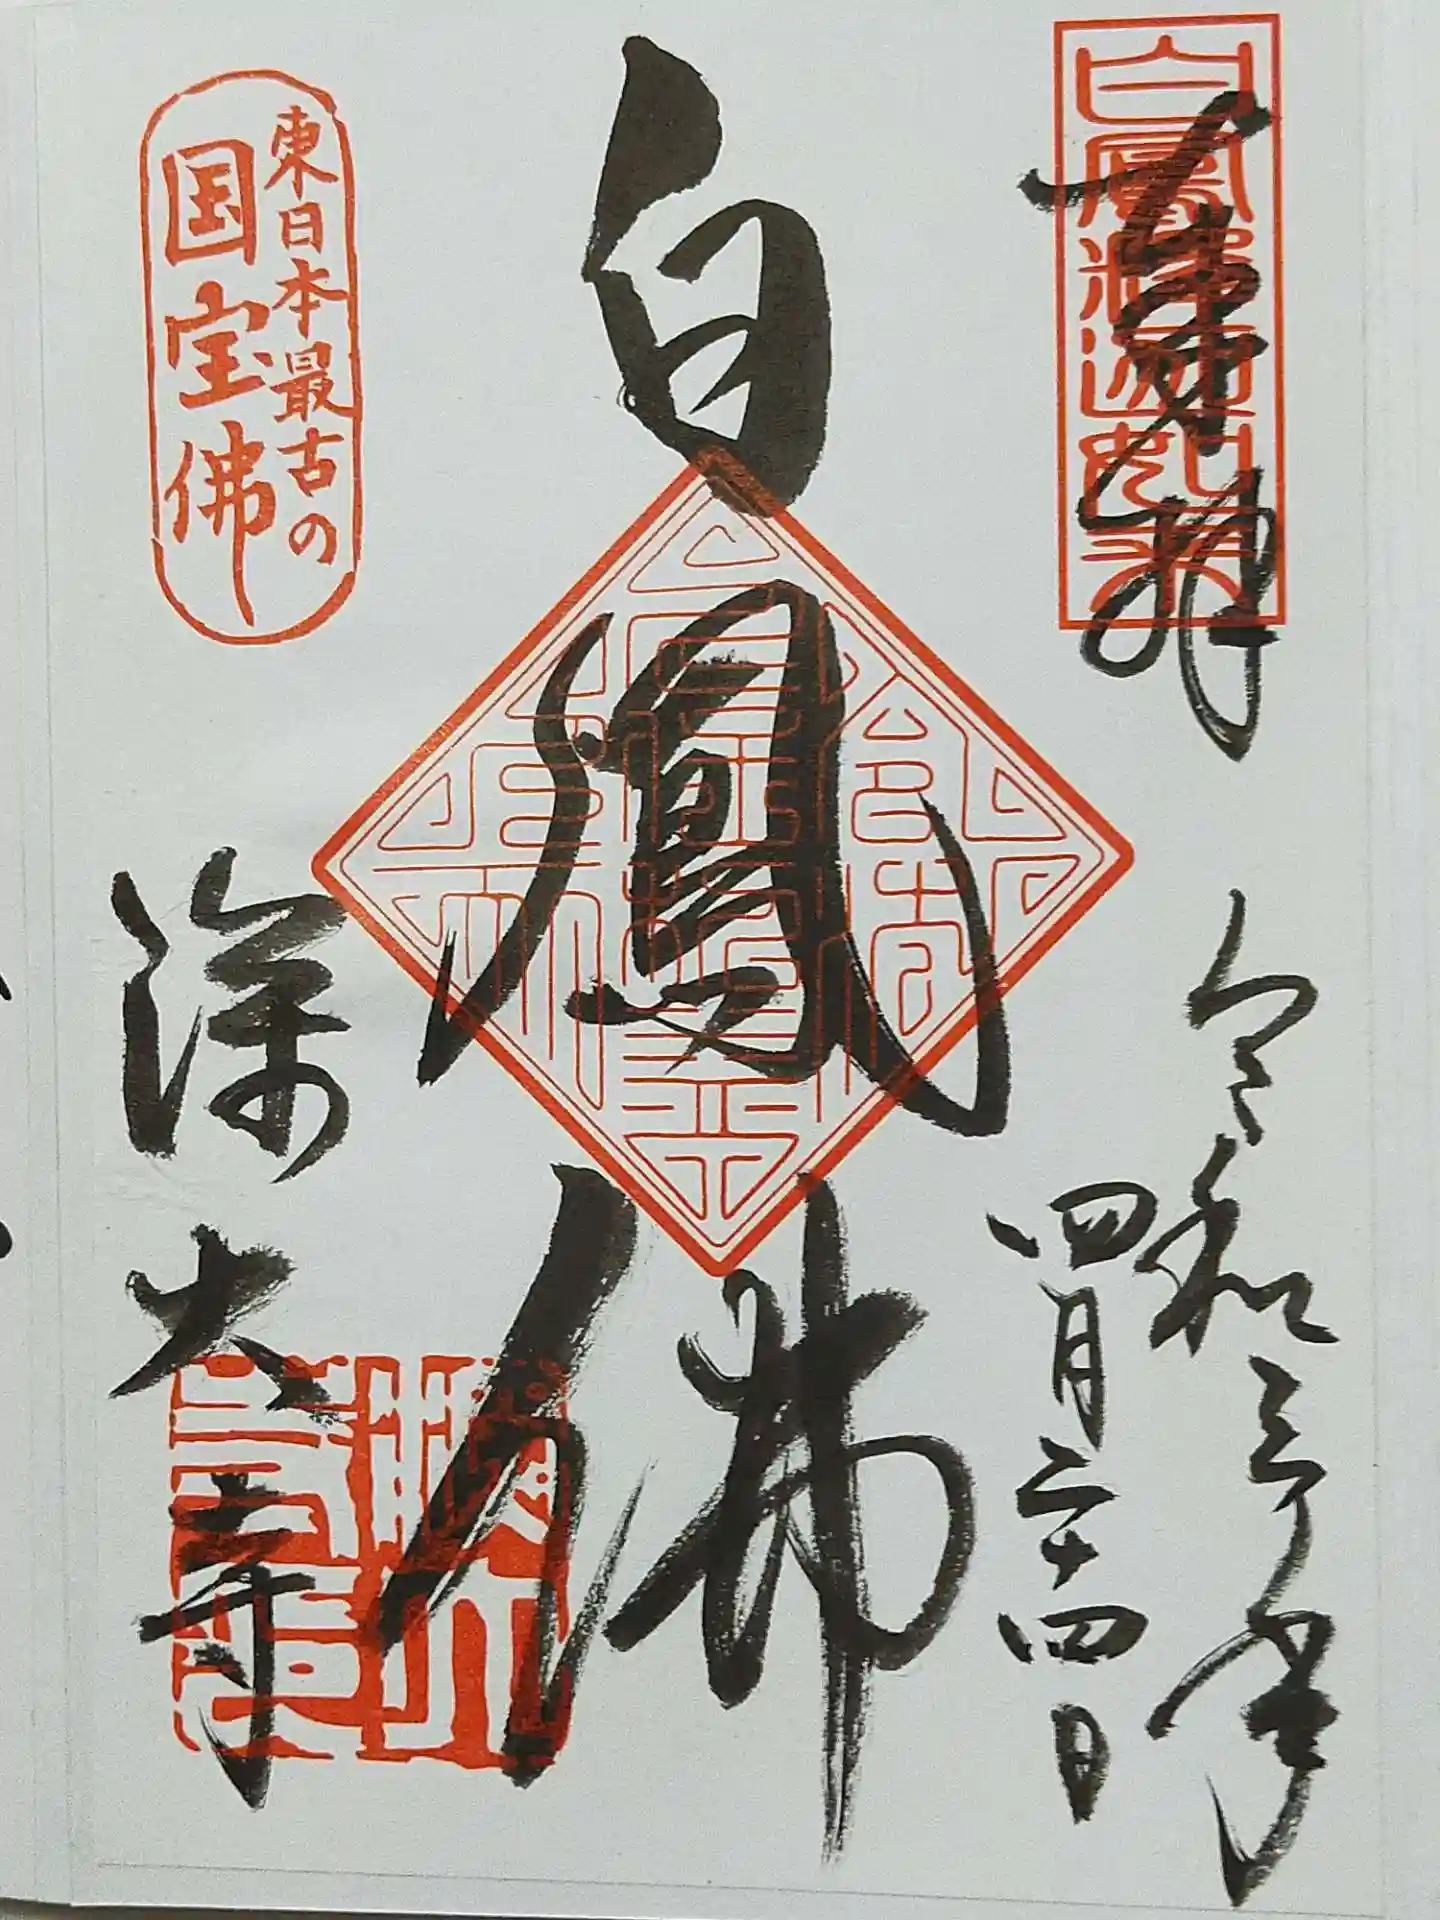 奉拝
白鳳釈迦如来
令和三年
四月二十四日
白鳳佛
東日本最古の
国宝佛
深大寺